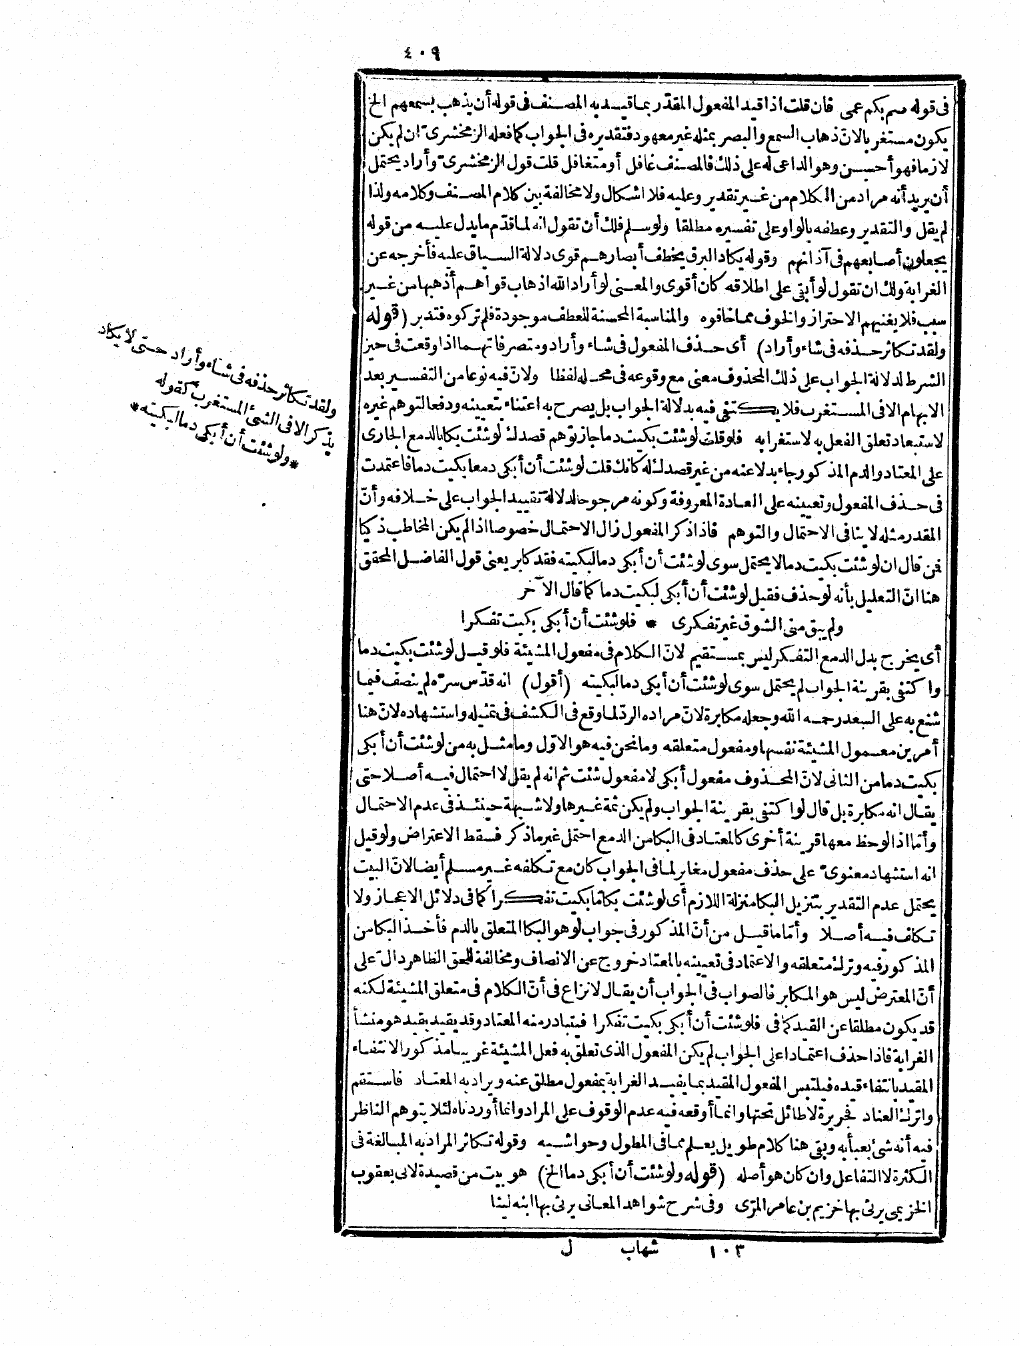 ٤٠٩
فى قوله صم بكم عمى فان قلت اذا قيد المفعول المقدّر بما قيده به المصنف فى قوله أن يذهب بسمعهم الخ
يكون مستغربا لانّ ذهاب السمع والبصر بمثله غير معهود فتقديره فى الجواب كما فعله الزمخشرىّ ان لم يكن
لازما فهو أحسن وهو الداعى له على ذلك فالمصنف غافل أو متغافل قلت قول الزمخشرىّ وأراد يحتمل
أن يريد أنه مراد من الكلام من غير تقدير وعليه فلا اشكال ولا مخالفة بين كلام المصنف وكلامه ولذا
لم يقل والتقدير وعطفه بالواو على تفسيره مطلقا ولو سلم فلك أن تقول انه لما قدّم ما يدل عليه من قوله
يجعلون أصابعهم فى آذانهم وقوله يكاد البرق يخطف أبصارهم قوى دلالة السياق عليه فأخرجه عن
الغرابة ولك ان تقول لو أبقى على اطلاقه كان أقوى والمعنى لو أراد الله اذهاب قواهم أذهبها من غير
سبب فلا يغنيهم الاحتراز والخوف مما خافوه والمناسبة المحسنة للعطف موجودة فلم تركوه فتدبر (قوله
ولقد تكاثر حذفه فى شاء وأراد) أى حذف المفعول فى شاء وأراد ومتصرفاتهما اذا وقعت فى حيز
الشرط لدلالة الجواب على ذلك المحذوف معنى مع وقوعه فى محله لفظا ولانّ فيه نوعا من التفسير بعد
الابهام الا فى المستغرب فلا يكتفى فيه بدلالة الجواب بل يصرح به اعتناء بتعيينه ودفعا لتوهم غيره
لاستبعاد تعلق الفعل به لاستغرابه فلو قلت لو شئت بكيت دما جاز توهم قصدك لو شئت بكا بالدمع الجارى
على المعتاد والدم المذكور جاء بدلا عنه من غير قصدك له كانك قلت لو شئت أن أبكى دمعا بكيت دما فاعتمدت
فى حذف المفعول وتعيينه على العادة المعروفة وكونه مرجوحا لدلالة تقييد الجواب على خلافه وأنّ
المقدر مثله لا ينافى الاحتمال والتوهم فاذا ذكر المفعول زال الاحتمال خصوصا اذا لم يكن المخاطب ذكيا
فمن قال ان لو شئت بكيت دما لا يحتمل سوى لو شئت أن أبكى دما لبكيته فقد كابر يعنى قول الفاضل المحقق
هنا انّ التعليل بأنه لو حذف فقيل لو شئت أن أبكى لبكيت دما كما قال الآخر
ولم يبق منى الشوق غير تفكرى * فلو شئت أن أبكى بكيت تفكرا
أى يخرج بدل الدمع التفكر ليس بمستقيم لانّ الكلام فى مفعول المشيئة فلو قيل لو شئت بكيت دما
واكتفى بقرينة الجواب لم يحتمل سوى لو شئت أن أبكى دما لبكيته (أقول) انه قدّس سرّه لم ينصف فيما
شنع به على السعد رحمه الله وجعله مكابرة لانّ مراده الردّ لما وقع فى الكشف فى تمثيله واستشهاده لانّ هنا
أمرين معمول المشيئة نفسها ومفعول متعلقه وما نحن فيه هو الاوّل وما مثل به من لو شئت أن أبكى
بكيت دما من الثانى لانّ المحذوف مفعول أبكى لا مفعول شئت ثم انه لم يقل لا احتمال فيه أصلا حتى
يقال انه مكابرة بل قال لو اكتفى بقرينة الجواب ولم يكن ثمة غيرها ولا شبهة حينئذ فى عدم الاحتمال
وأمّا اذا لوحظ معها قرينة أخرى كالمعتاد فى البكا من الدمع احتمل غير ما ذكر فسقط الاعتراض ولو قيل
انه استشهاد معنوىّ على حذف مفعول مغاير لما فى الجواب كان مع تكلفه غير مسلم أيضا لانّ البيت
يحتمل عدم التقدير بتنزيل البكا منزلة اللازم أى لو شئت بكا ما بكيت تفكرا كما فى دلائل الاعجاز ولا
تكلف فيه أصلا وأمّا ما قيل من أنّ المذكور فى جواب لو هو البكا المتعلق بالدم فأخذ البكا من
المذكور فيه وترك متعلقه والاعتماد فى تعيينه بالمعتاد خروج عن الانصاف ومخالفة للحق الظاهر دالّ على
أنّ المعترض ليس هو المكابر فالصواب فى الجواب أن يقال لا نزاع فى أنّ الكلام فى متعلق المشيئة لكنه
قد يكون مطلقا عن القيد كما فى فلو شئت أن أبكى بكيت تفكرا فيتبادر منه المعتاد وقد يقيد بقيد هو منشأ
الغرابة فاذا حذف اعتمادا على الجواب لم يكن المفعول الذى تعلق به فعل المشيئة غريبا مذكورا لانتفاء
المقيد بانتفاء قيده فيلتبس المفعول المقيد بما يفيد الغرابة بمفعول مطلق عنه ويراد به المعتاد فاستقم
واترك العناد فجريرة لا طائل تحتها وانما أوقعه فيه عدم الوقوف على المراد وانما أوردناه لئلا يتوهم الناظر
فيه أنه شئ يعبأ به وبقى هنا كلام طويل يعلم مما فى المطول وحواشيه وقوله تكاثر المراد به المبالغة فى
الكثرة لا التفاعل وان كان هو أصله (قوله ولو شئت أن أبكى دما الخ) هو بيت من قصيدة لابى يعقوب
الخزيمى يرثى بها خزيم بن عامر المرّى وفى شرح شواهد المعانى يرثى بها ابنه ليثا
ولقد تكاثر حذفه فى شاء وأراد حتى لا يكاد
يذكر الا فى الشئ المستغرب كقوله
* ولو شئت أن أبكى دما لبكيته *
١٠٣ شهاب ل